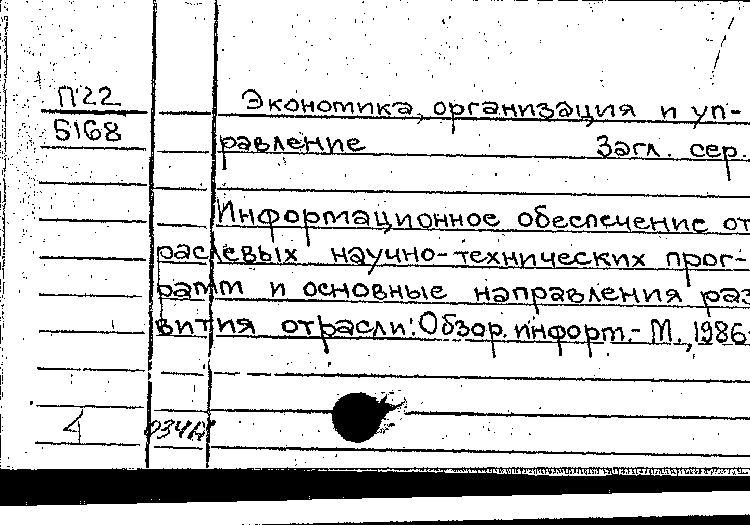 П22
Б168
Экономика, организация и уп-
равление Загл. сер.
Информационное обеспечение от
раслевых научно-технических прог-
рамм и основные направления раз
вития отрасли: Обзор. информ.- М., 1986